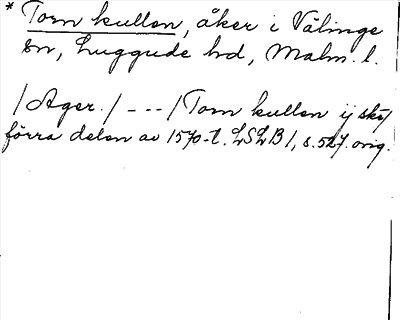 * Torn kullen, åker i Välinge
sn, Luggude hd, Malm. l.
/Ager./ --- /Torn kullen ij skp/
förra delen av 1570-t. LSLB1, s. 527. orig.